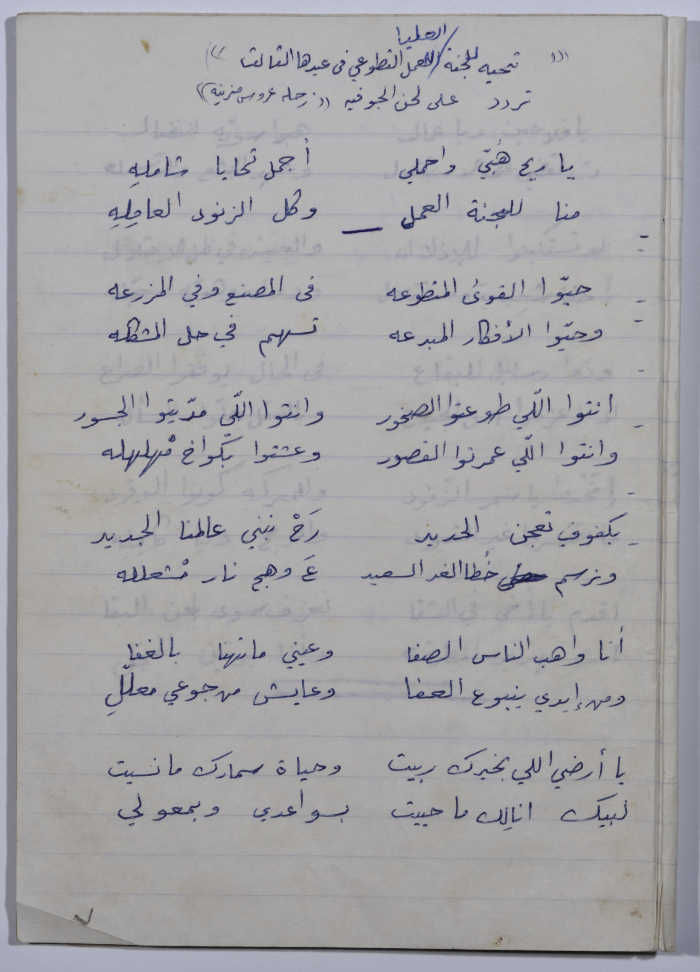 (( تحيه للجنة العليا للعمل التطوعي في عيدها الثالث ))
تردد على لحن الجوفيه ((
يا ريح هُبّي واحملي أجمل تحايا شامله
منا للجنة العمل وكل الزنود العامله
حيّوا القوى المتطوعه في المصنع وفي المزرعه
وحيّوا الأفكار المبدعه تسهم في حل المشكله
انتوا اللّي طوعتوا الصخور وانتوا اللّي مدّيتوا الجسور
وانتوا اللّي عمرتوا القصور وعشتوا بكواخ مْهلهله
بكفوف تعجن الحديد رَحْ نبني عالمنا الجديد
ونرسم خُطا الغد السعيد عَ وهج نار مْشعلله
أنا واهب الناس الصفا وعيني ما تهنا بالغفا
ومن إيدي ينبوع العفا وعايش من جوعي معلّلِ
يا أرضي اللي بخيرك ربيت وحياة سمارك ما نسيت
لبيك انا لك ما حييت بسواعدي وبمعولي